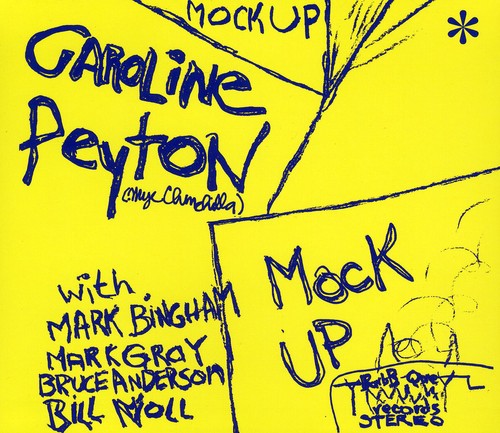 MOCKUP
*
CAROLINE
PEYTON
(Myc Chinchilla)
MOCK
UP
with
MARK BINGHAM
MARK GRAY
BRUCE ANDERSON
BILL NOLL
BarB-Que
records
STEREO